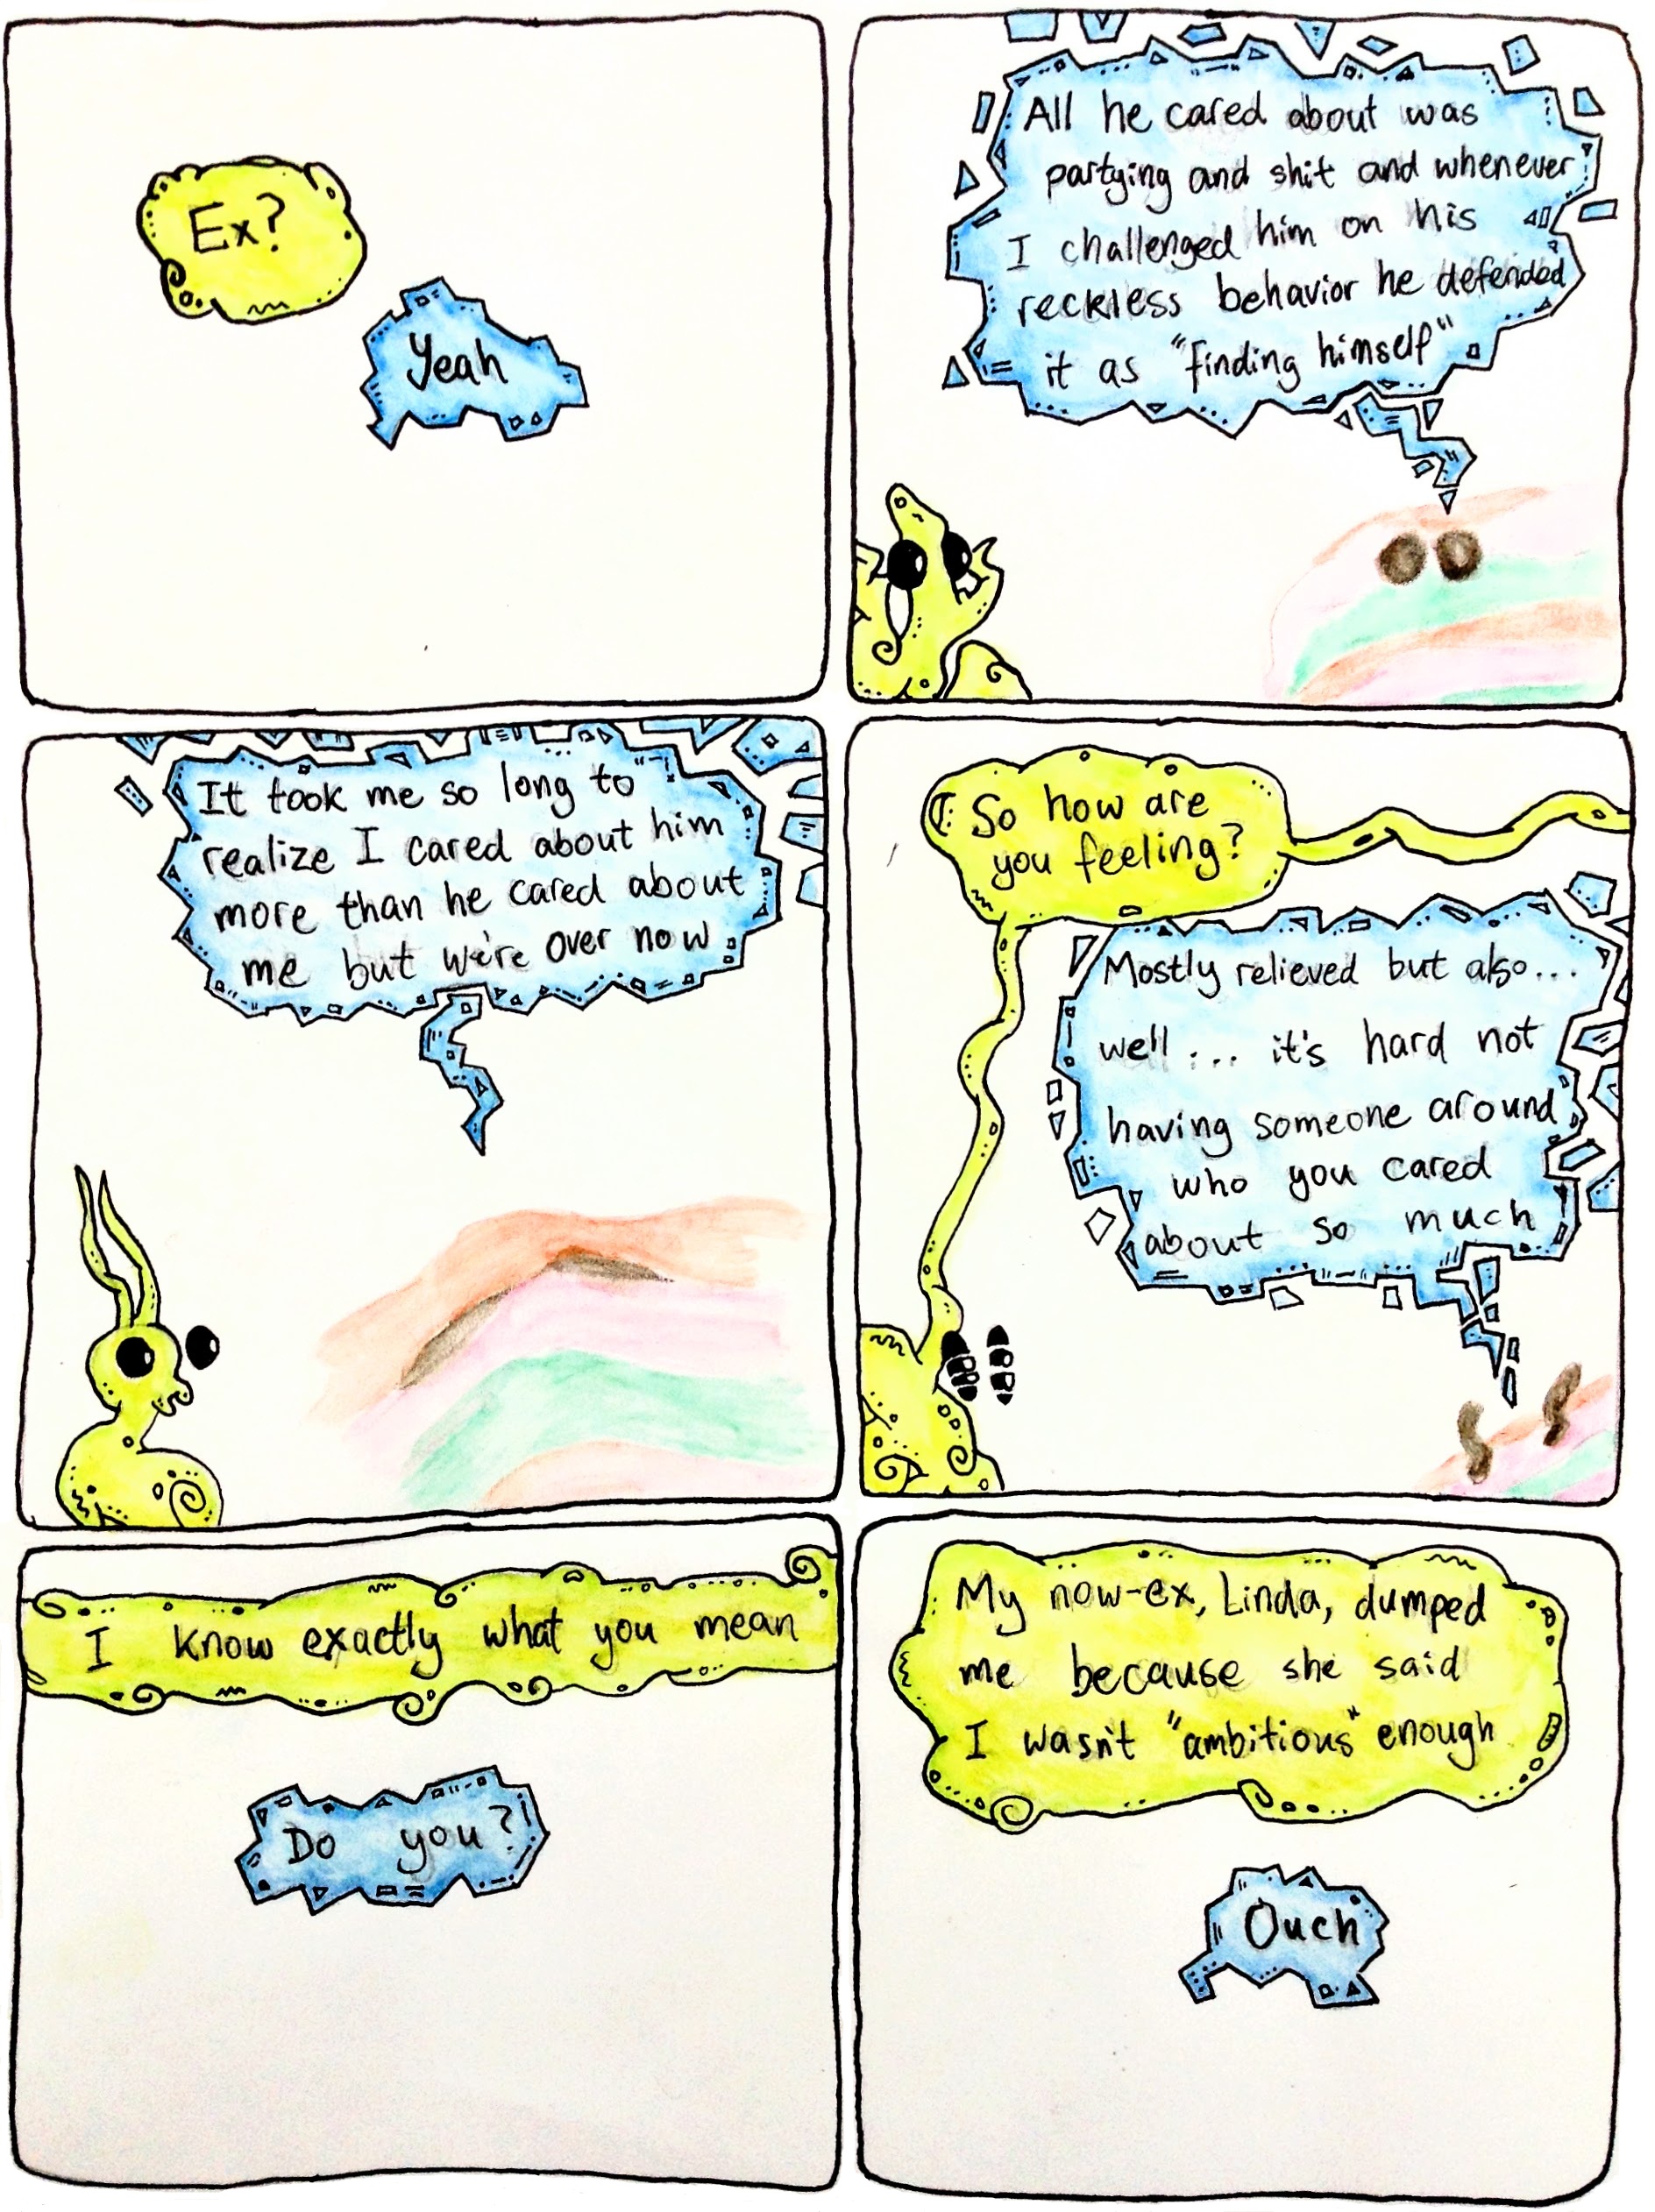 Ex?
Yeah
All he cared about was
partying and shit and whenever
I challenged him on his
reckless behavior he defended
it as "finding himself"
It took me so long to
realize I cared about him
more than he cared about
me but we're over now
So how are
you feeling?
Mostly relieved but also...
well... it's hard not
having someone around
who you cared
about so much
I know exactly what you mean
Do you?
My now-ex, Linda, dumped
me because she said
I wasn't "ambitious" enough
Ouch